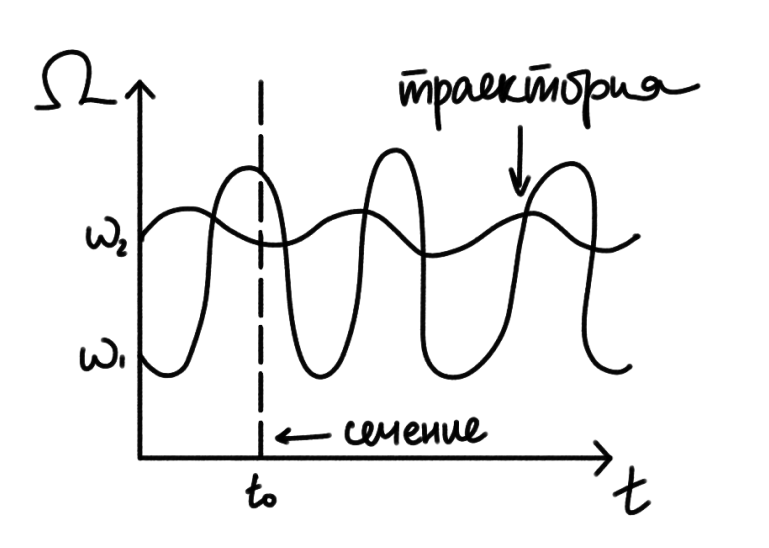 Ω
траектория
ω₂
ω₁
сечение
t₀
t